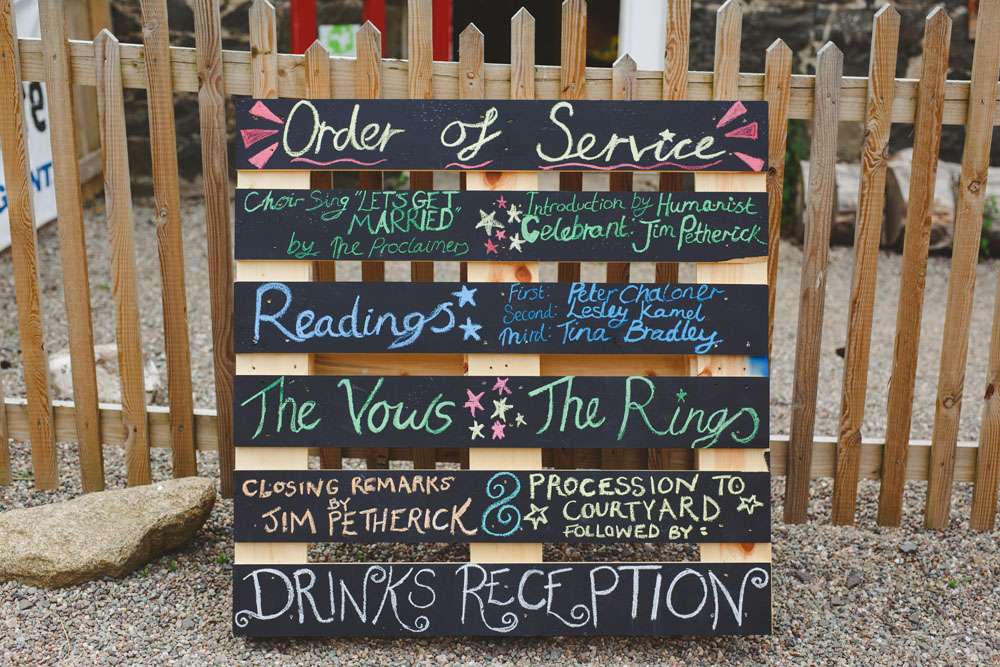 Order of Service
Choir Sing "LET'S GET
MARRIED"
by The Proclaimers
Introduction by Humanist
Celebrant: Jim Petherick
Readings
First: Peter Chaloner
Second: Lesley Kamel
Third: Tina Bradley
The Vows
The Rings
CLOSING REMARKS
BY
JIM PETHERICK
&
PROCESSION TO
COURTYARD
FOLLOWED BY:
DRINKS RECEPTION